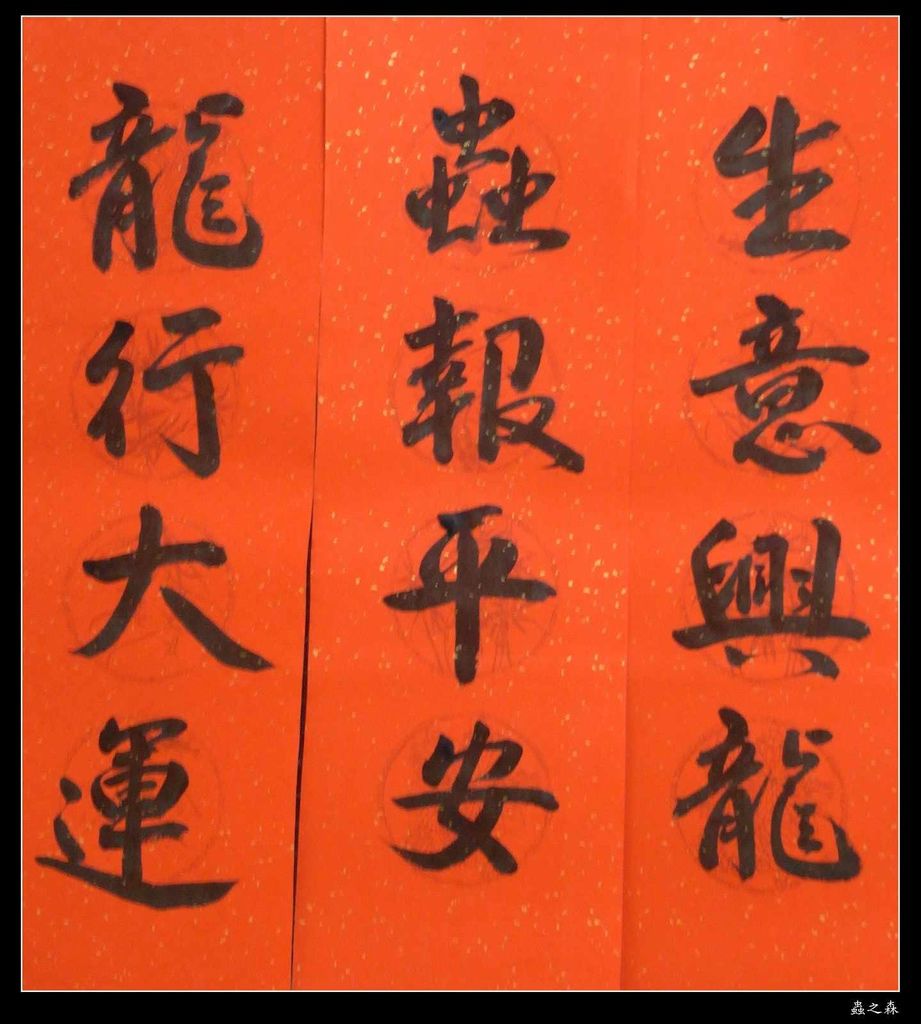 生意興龍
蟲報平安
龍行大運
蟲之森